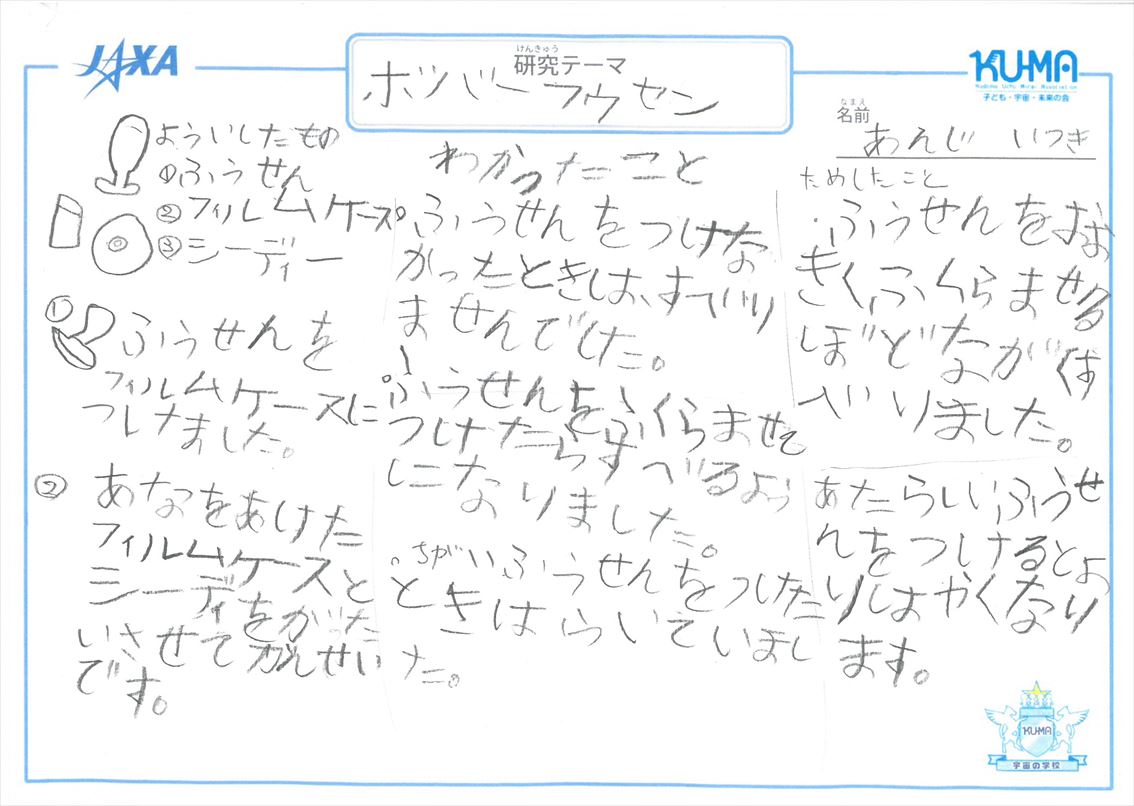 JAXA
けんきゅう
研究テーマ
ホツバーフウセン
KU-MA
Kodomo Uchu Mirai Association
子ども・宇宙・未来の会
なまえ
名前
あんじ いつき
よういしたもの
①ふうせん
②フィルムケース
③シーディー
①
ふうせんを
フィルムケースに
つけました。
②
あなをあけた
フィルムケースと
シーディをがった
いさせてかんせい
です。
わかったこと
ふうせんをつけな
かったときは、すべり
ませんでした。
ふうせんをふくらませて
つけたらすべるよう
になりました。
・ちがいふうせんをつけた
ときは
ていまし
た。
ためしたこと
・ふうせんをおお
きくふくらませる
ほどながくす
べりました。
あたらしいふうせ
んをつけるとよ
りはやくなり
ます。
KU-MA
宇宙の学校